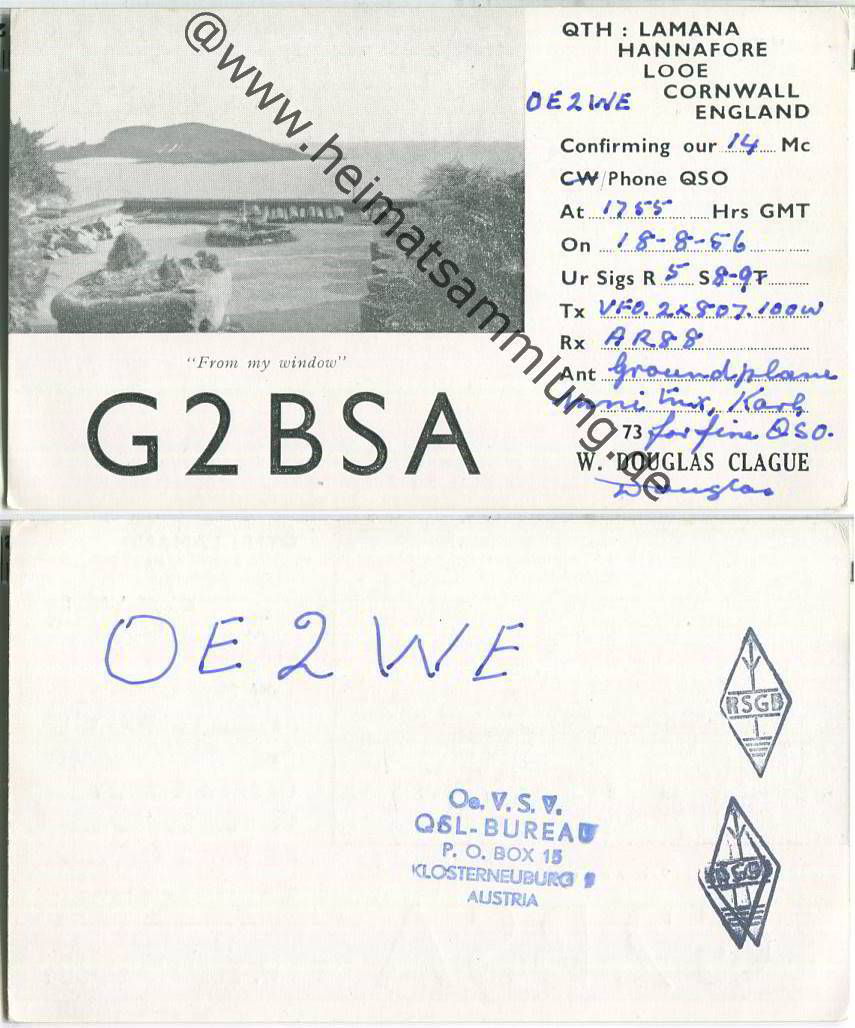 @www.heimatsammlung.de
QTH : LAMANA
HANNAFORE
LOOE
CORNWALL
ENGLAND
OE2WE
Confirming our 14 Mc
CW/Phone QSO
At 1755 Hrs GMT
On 18-8-56
Ur Sigs R 5 S 8-9 T
Tx VFO. 2x807. 100W
Rx AR88
Ant Groundplane
Karl,
73 for fine QSO.
W. DOUGLAS CLAGUE
Douglas
"From my window"
G2BSA
OE2WE
RSGB
Oe. V. S. V.
QSL-BUREAU
P. O. BOX 15
KLOSTERNEUBURG
AUSTRIA
RSGB